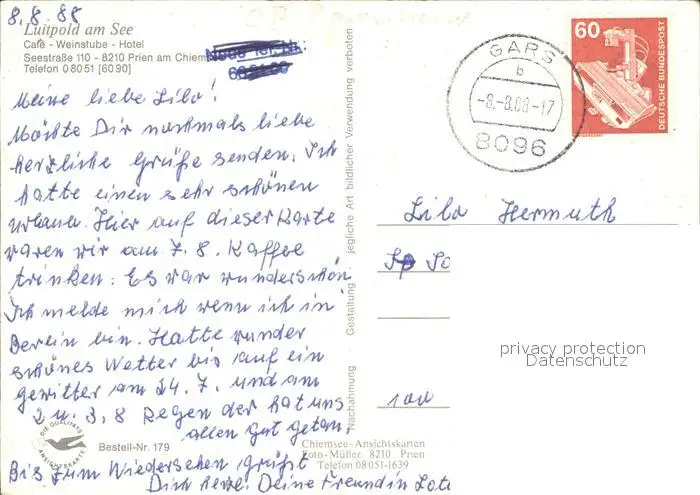 8.8.88
Luitpold am See
Café - Weinstube - Hotel
Seestraße 110 - 8210 Prien am Chiem
Telefon 0 80 51 [60 90]
Meine liebe Lilo!
Möchte Dir nochmals liebe
herzliche Grüße senden. Ich
hatte einen sehr schönen
Urlaub. Hier auf dieser Karte
waren wir am 7. 8. Kaffee
trinken. Es war wunderschön
Ich melde mich wenn ich in
Berlin bin. Hatte wunder
schönes Wetter bis auf ein
gewitter am 24. 7. und am
2 u. 3. 8 Regen der hat uns
allen gut getan.
Bis zum Wiedersehen grüßt
Dich herzl. Deine Freundin
DIE QUALITÄTS
ANSICHTSKARTE
Bestell-Nr. 179
Chiemsee-Ansichtskarten
Foto-Müller 8210 Prien
Telefon 08051-1639
Nachahmung Gestaltung jegliche Art bildlicher Verwendung verboten
GARS
b
-8.-8.88-17
8096
60
DEUTSCHE BUNDESPOST
Lilo Hermuth
privacy protection
Datenschutz